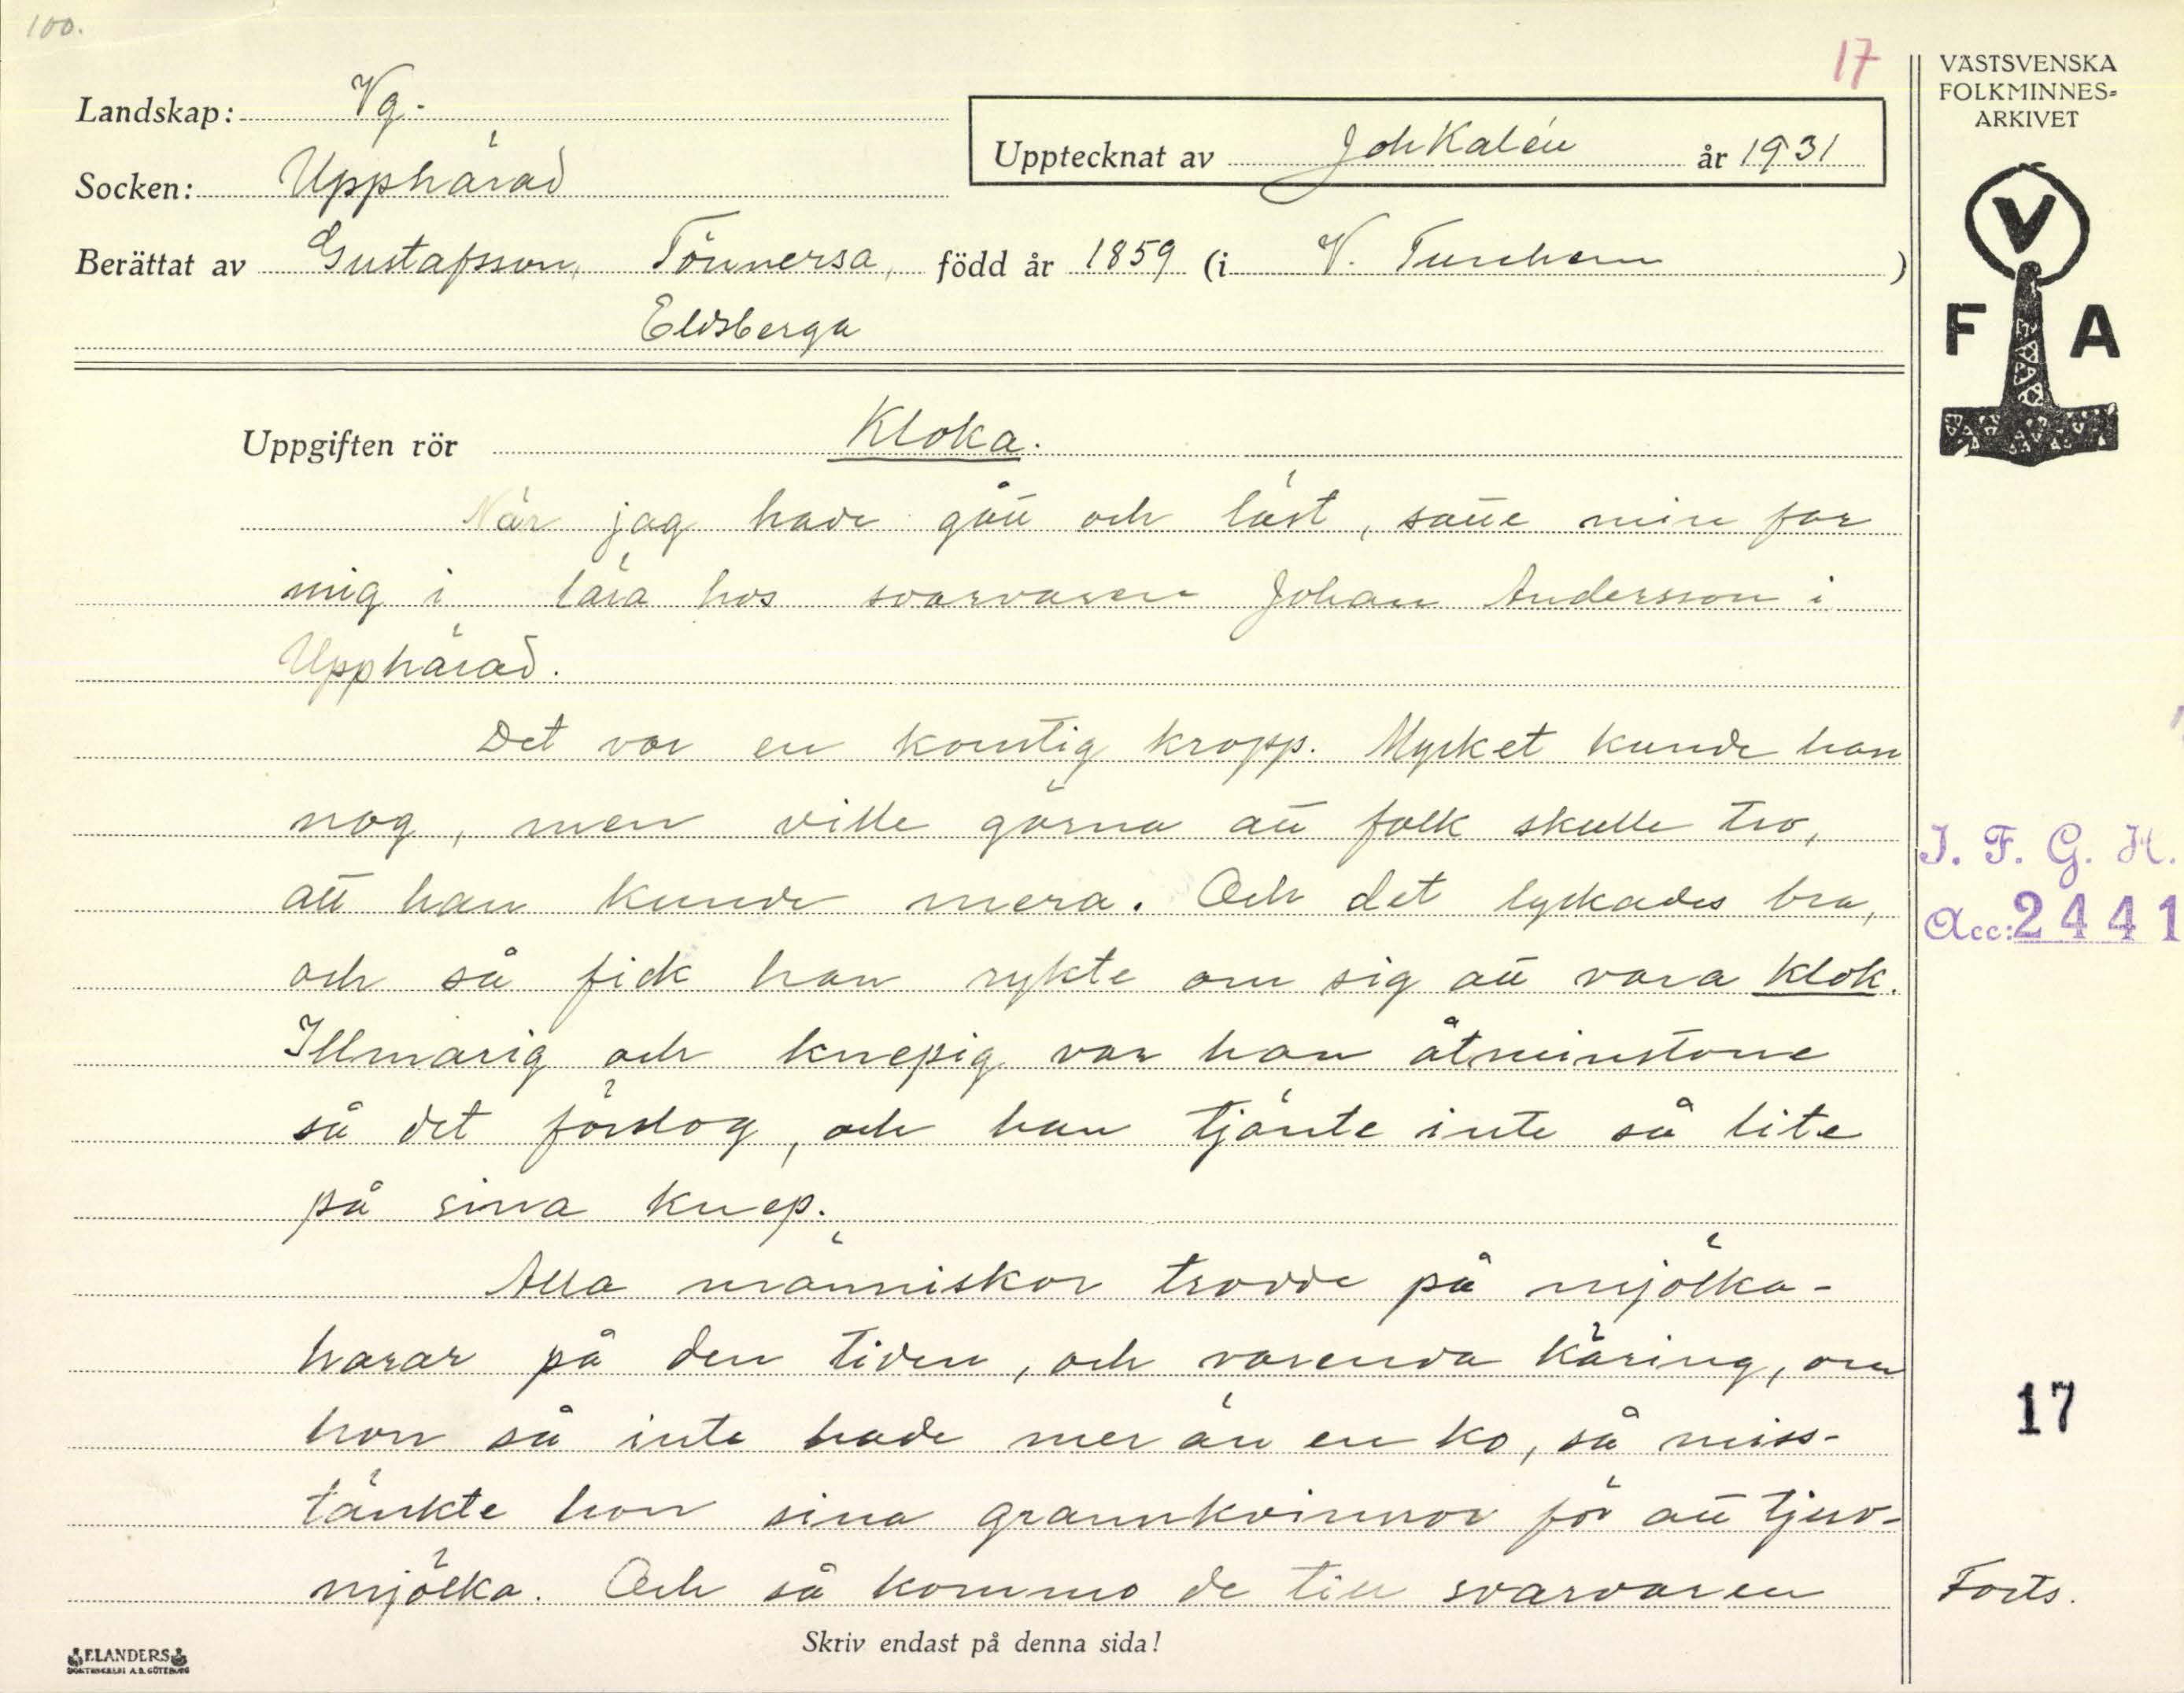 100.
17
VÄSTSVENSKA
FOLKMINNES=
ARKIVET
Landskap: Vg.
Upptecknat av Joh Kalén år 1931
Socken: Upphärad
Berättat av Gustafsson, Tönnersa, född år 1859 (i V. Tunhem)
Eldsberga
V
F A
Uppgiften rör Kloka.
När jag hade gått och läst, satte min far
mig i lära hos svarvaren Johan Andersson i
Upphärad.
Det var en konstig kropp. Mycket kunde han
nog, men ville gärna att folk skulle tro,
att han kunde mera. Och det lyckades bra,
och så fick han rykte om sig att vara klok.
Illmarig och knepig var han åtminstone
så det förslog, och han tjänte inte så lite
på sina knep.
Alla människor trodde på mjölka-
harar på den tiden, och varenda käring, om
hon så inte hade mer än en ko, så miss-
tänkte hon sina grannkvinnor för att tjuv-
mjölka. Och så kommo de till svarvaren
I. F. G. H.
Acc: 2441
17
Forts.
Skriv endast på denna sida!
ELANDERS
BOKTRYCKERI A.B. GÖTEBORG